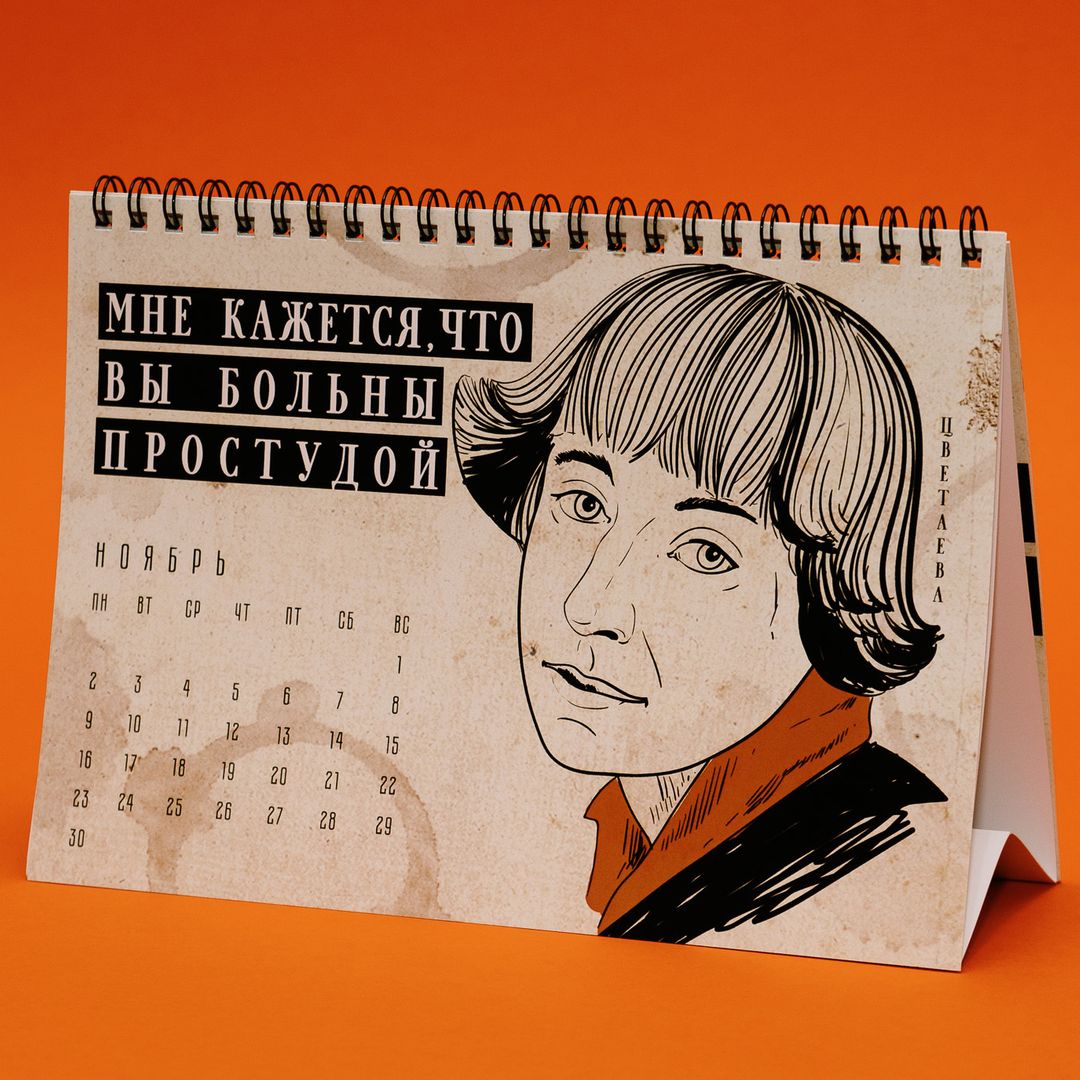 МНЕ КАЖЕТСЯ, ЧТО
ВЫ БОЛЬНЫ
ПРОСТУДОЙ
ЦВЕТАЕВА
НОЯБРЬ
ПН ВТ СР ЧТ ПТ СБ ВС
1
2 3 4 5 6 7 8
9 10 11 12 13 14 15
16 17 18 19 20 21 22
23 24 25 26 27 28 29
30